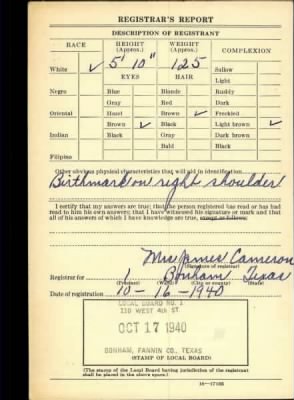 REGISTRAR'S REPORT
DESCRIPTION OF REGISTRANT
RACE HEIGHT (Approx.) WEIGHT (Approx.) COMPLEXION
White ✓ 5' 10" 125 Sallow
EYES HAIR Light
Negro Blue Blonde Ruddy
Gray Red Dark
Oriental Hazel Brown ✓ Freckled
Brown ✓ Black Light brown ✓
Indian Black Gray Dark brown
Bald Black
Filipino
Other obvious physical characteristics that will aid in identification
Birthmark on right shoulder
I certify that my answers are true; that the person registered has read or has had
read to him his own answers; that I have witnessed his signature or mark and that
all of his answers of which I have knowledge are true, except as follows:
Mrs James Cameron
(Signature of registrar)
Registrar for 1 Bonham Texas
(Precinct) (Ward) (City or county) (State)
Date of registration 10-16-1940
LOCAL BOARD NO. 1
110 WEST 4th ST.
OCT 17 1940
BONHAM, FANNIN CO., TEXAS
(STAMP OF LOCAL BOARD)
(The stamp of the Local Board having jurisdiction of the registrant
shall be placed in the above space.)